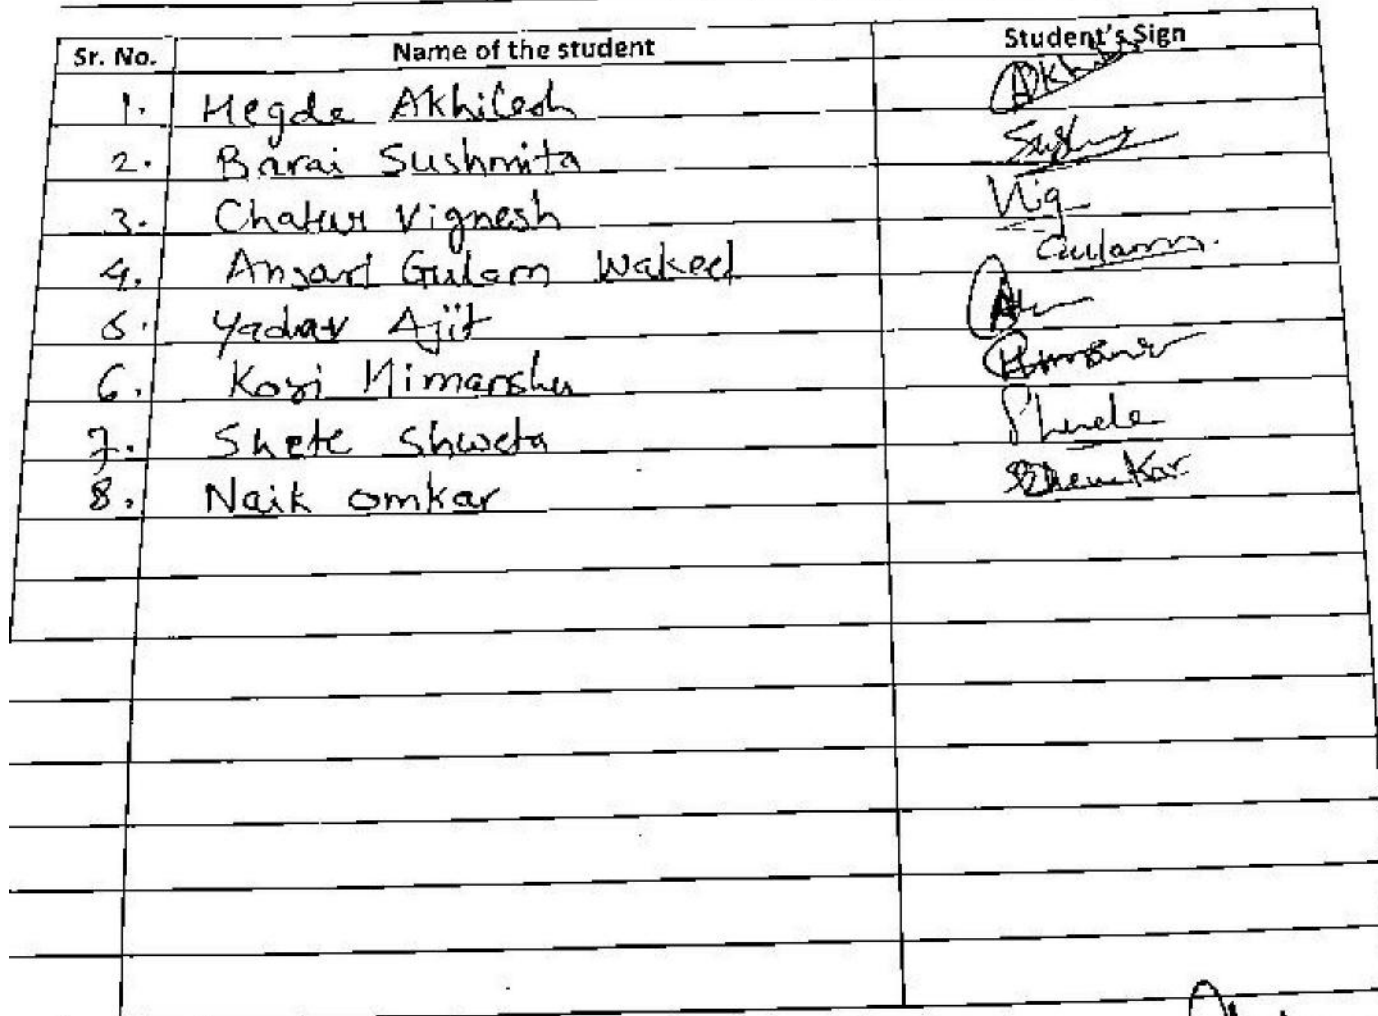 Sr. No. Name of the student Student's Sign
1. Hegde Akhilesh Akhil
2. Barai Sushmita
3. Chatur Vignesh Vig
4. Ansari Gulam Wakeel Gulam.
5. Yadav Ajit
6. Himanshu
7. Shete Shweta
8. Naik omkar